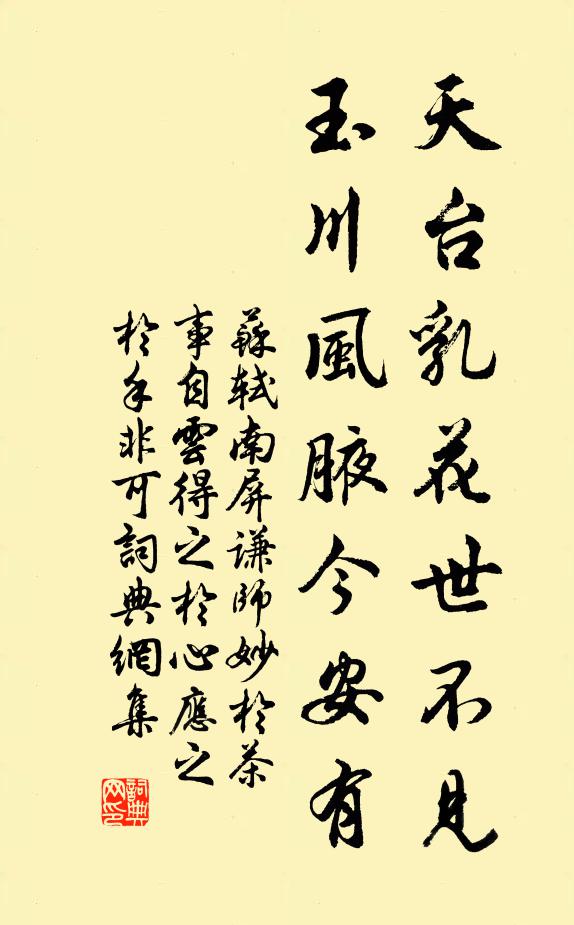 天台乳花世不見
玉川風腋今安有
蘇軾南屏謙師妙於茶
事自雲得之於心應之
於手非可詞典網集
詞典
网印